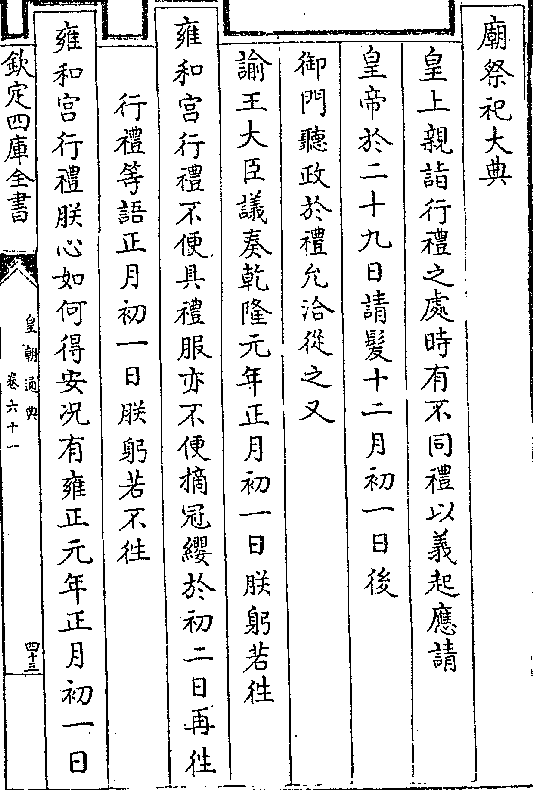 廟祭祀大典
皇上親詣行禮之處時有不同禮以義起應請
皇帝於二十九日請髮十二月初一日後
御門聽政於禮允洽從之又
諭王大臣議奏乾隆元年正月初一日朕躬若徃
雍和宮行禮不便具禮服亦不便摘冠纓於初二日再徃
行禮等語正月初一日朕躬若不徃
雍和宮行禮朕心如何得安况有雍正元年正月初一日
欽定四庫全書
皇朝通典
卷六十一
四十三